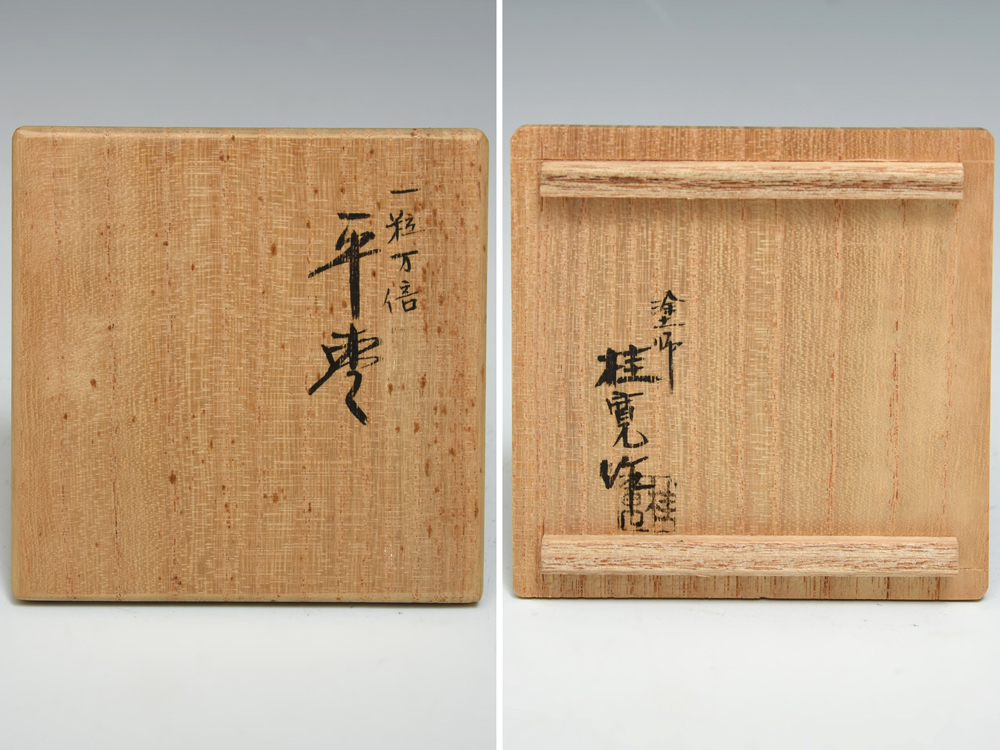 一粒万倍
平棗
塗師
桂寛作
桂